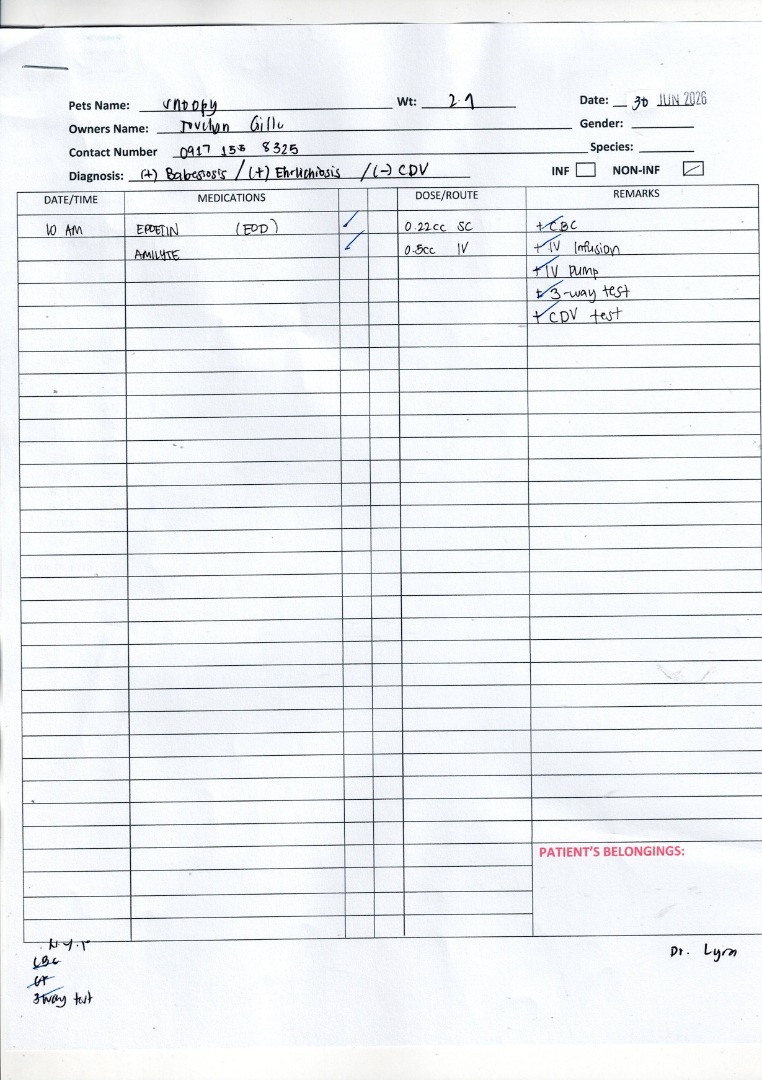 Pets Name: Snoopy Wt: 2.7 Date: 30 JUN 2026
Owners Name: Jovelyn Gillo Gender:
Contact Number 0917 155 8325 Species:
Diagnosis: (+) Babesiosis / (+) Ehrlichiosis / (-) CDV INF NON-INF
DATE/TIME MEDICATIONS DOSE/ROUTE REMARKS
10 AM EPOETIN (EOD) 0.22cc SC + CBC
AMILYTE 0.5cc IV + IV Infusion
+ IV Pump
+ 3-way test
+ CDV test
PATIENT'S BELONGINGS:
Dr. Lyra
CBC
3way test